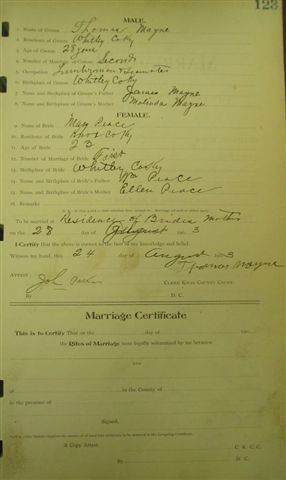 123
MALE.
1. Name of Groom Thomas Mayne
2. Residence of Groom Whitley Co Ky
3. Age of Groom 28 years
4. Number of Marriage of Groom Second
5. Occupation Lumberman & Teamster
6. Birthplace of Groom Whitley Co Ky
7. Name and Birthplace of Groom's Father James Mayne
8. Name and Birthplace of Groom's Mother Malinda Mayne
FEMALE.
9. Name of Bride Mary Peace
10. Residence of Bride Knox Co Ky
11. Age of Bride 23
12. Number of Marriage of Bride First
13. Birthplace of Bride Whitley Co Ky
14. Name and Birthplace of Bride's Father Wm Peace
15. Name and Birthplace of Bride's Mother Ellen Peace
16. Remarks
To be married at Residence of Brides Mother
on the 28 day of August 190 3
I Certify that the above is correct to the best of my knowledge and belief.
Witness my hand, this 24 day of August 190 3
Thomas Mayne
Attest:
Clerk Knox County Court.
By D. C.
Marriage Certificate
This is to Certify That on the day of 190
the Rites of Marriage were legally solemnized by me between
and
at in the County of
in the presence of
Signed,
A Copy Attest: C. K. C. C.
By D. C.